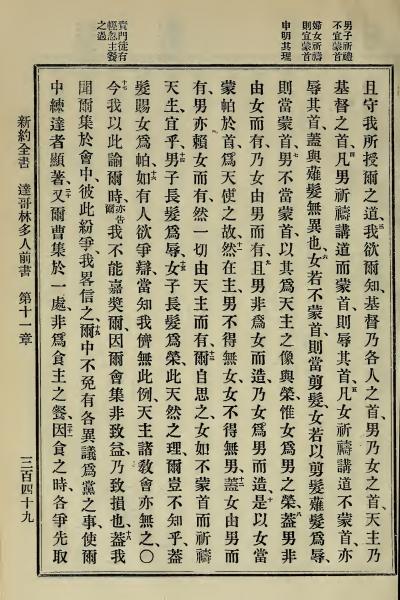 男子祈禱
不宜蒙首
婦女祈禱
則宜蒙首
申明其理
責門徒有
輕忽主餐
之過
且守我所授爾之道、三我欲爾知基督乃各人之首、男乃女之首、天主乃
基督之首、四凡男祈禱講道而蒙首、則辱其首、五凡女祈禱講道不蒙首、亦
辱其首、蓋與薙髮無異也、六女若不蒙首、則當剪髮、女若以剪髮薙髮爲辱、
則當蒙首、七男不當蒙首、以其爲天主之像與榮、惟女爲男之榮、八蓋男非
由女而有、乃女由男而有、九且男非爲女而造、乃女爲男而造、十是以女當
蒙帕於首、爲天使之故、十一然在主、男不得無女、女不得無男、十二蓋女由男而
有、男亦賴女而有、然一切由天主而有、十三爾自思之、女如不蒙首而祈禱
天主、宜乎、十四男子長髮爲辱、十五女子長髮爲榮、此天然之理、爾豈不知乎、蓋
髮賜女爲帕、十六如有人欲爭辯、當知我儕無此例、天主諸敎會亦無之、○
十七今我以此諭爾時、亦告爾我不能嘉獎爾、因爾會集、非致益、乃致損也、十八蓋我
聞爾集於會中、彼此紛爭、我畧信之、十九爾中不免有各異議爲黨之事、使爾
中練達者顯著、二十又爾曹集於一處、非爲食主之餐、二十一因食之時、各爭先取
新約全書 達哥林多人前書 第十一章 三百四十九